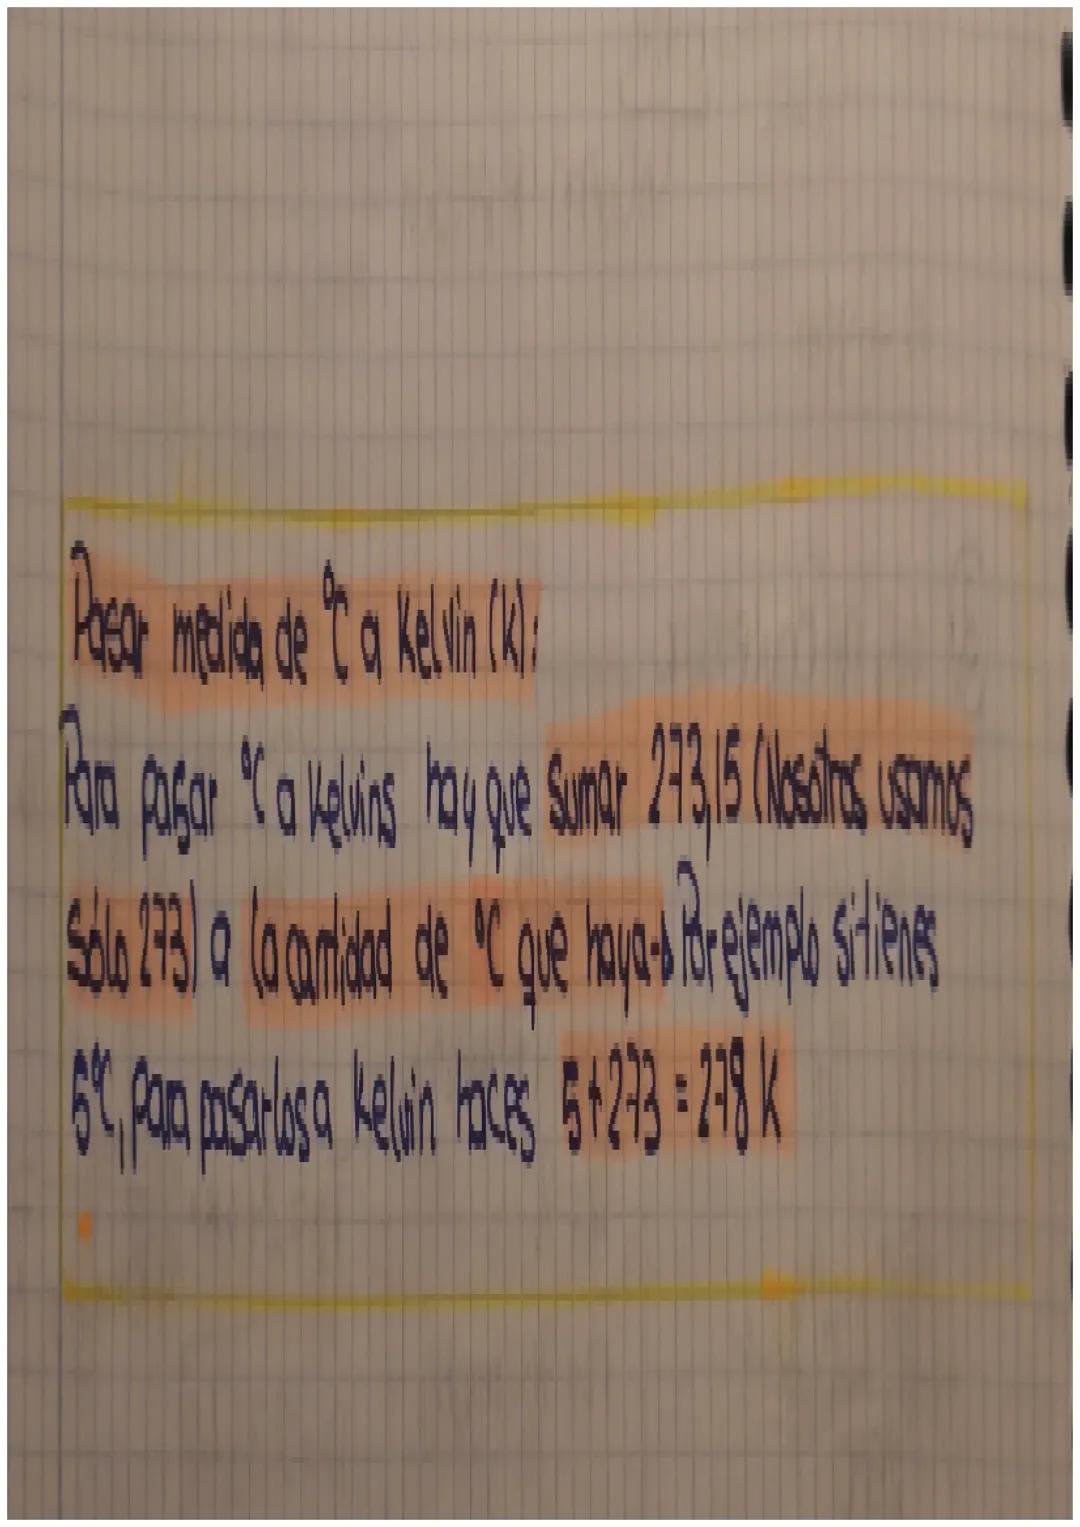 Pasar medida de °C a Kelvin (K):
Para pasar °C a Kelvins hay que sumar 273,15 (Nosotros usamos
sólo 273) a la cantidad de °C que haya→ Por ejemplo si tienes
5°C, para pasarlos a Kelvin haces 5+273 = 278 K